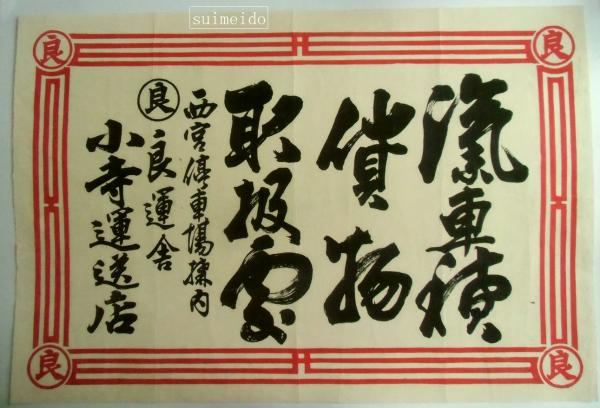 suimeido
良
良
汽車積
貨物
取扱処
西宮停車場構内
良
良運舎
小寺運送店
良
良